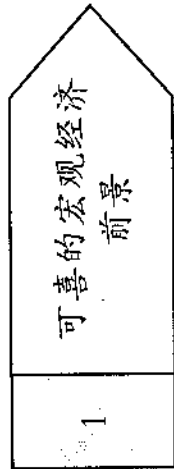 1
可喜的宏观经济
前景